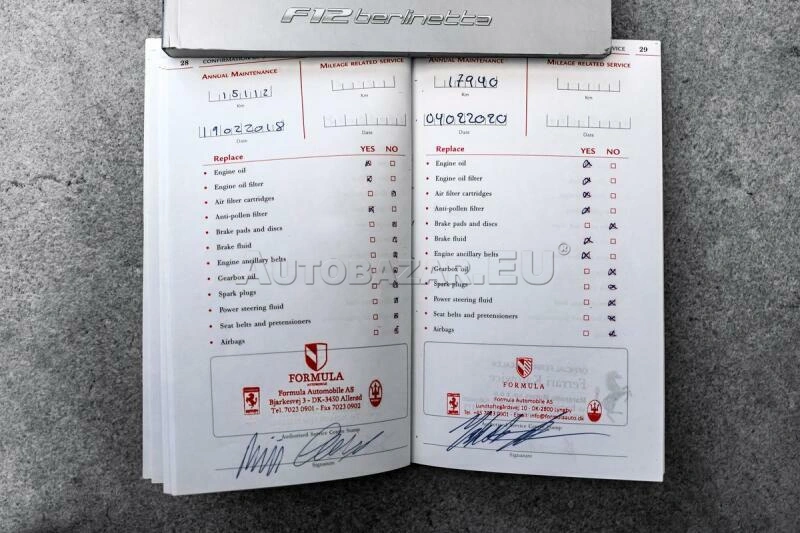 F12berlinetta
28 CONFIRMATION
ANNUAL MAINTENANCE
MILEAGE RELATED SERVICE
15112
Km
Km
19022018
Date
Date
Replace YES NO
• Engine oil
• Engine oil filter
• Air filter cartridges
• Anti-pollen filter
• Brake pads and discs
• Brake fluid
• Engine ancillary belts
• Gearbox oil
• Spark plugs
• Power steering fluid
• Seat belts and pretensioners
• Airbags
FORMULA
AUTOMOBILE
Formula Automobile AS
Bjarkesvej 3 - DK-3450 Allerød
Tel. 7023 0901 - Fax 7023 0902
Authorised Service Centre Stamp
Signature
SERVICE 29
ANNUAL MAINTENANCE
MILEAGE RELATED SERVICE
17940
Km
Km
04022020
Date
Date
Replace YES NO
• Engine oil
• Engine oil filter
• Air filter cartridges
• Anti-pollen filter
• Brake pads and discs
• Brake fluid
• Engine ancillary belts
• Gearbox oil
• Spark plugs
• Power steering fluid
• Seat belts and pretensioners
• Airbags
FORMULA
Formula Automobile AS
Lundtoftegårdsvej 10 - DK-2800 Lyngby
Tel. +45 7023 0901 - Email: info@formulaauto.dk
Service Centre Stamp
Signature
AUTOBAZAR.EU®